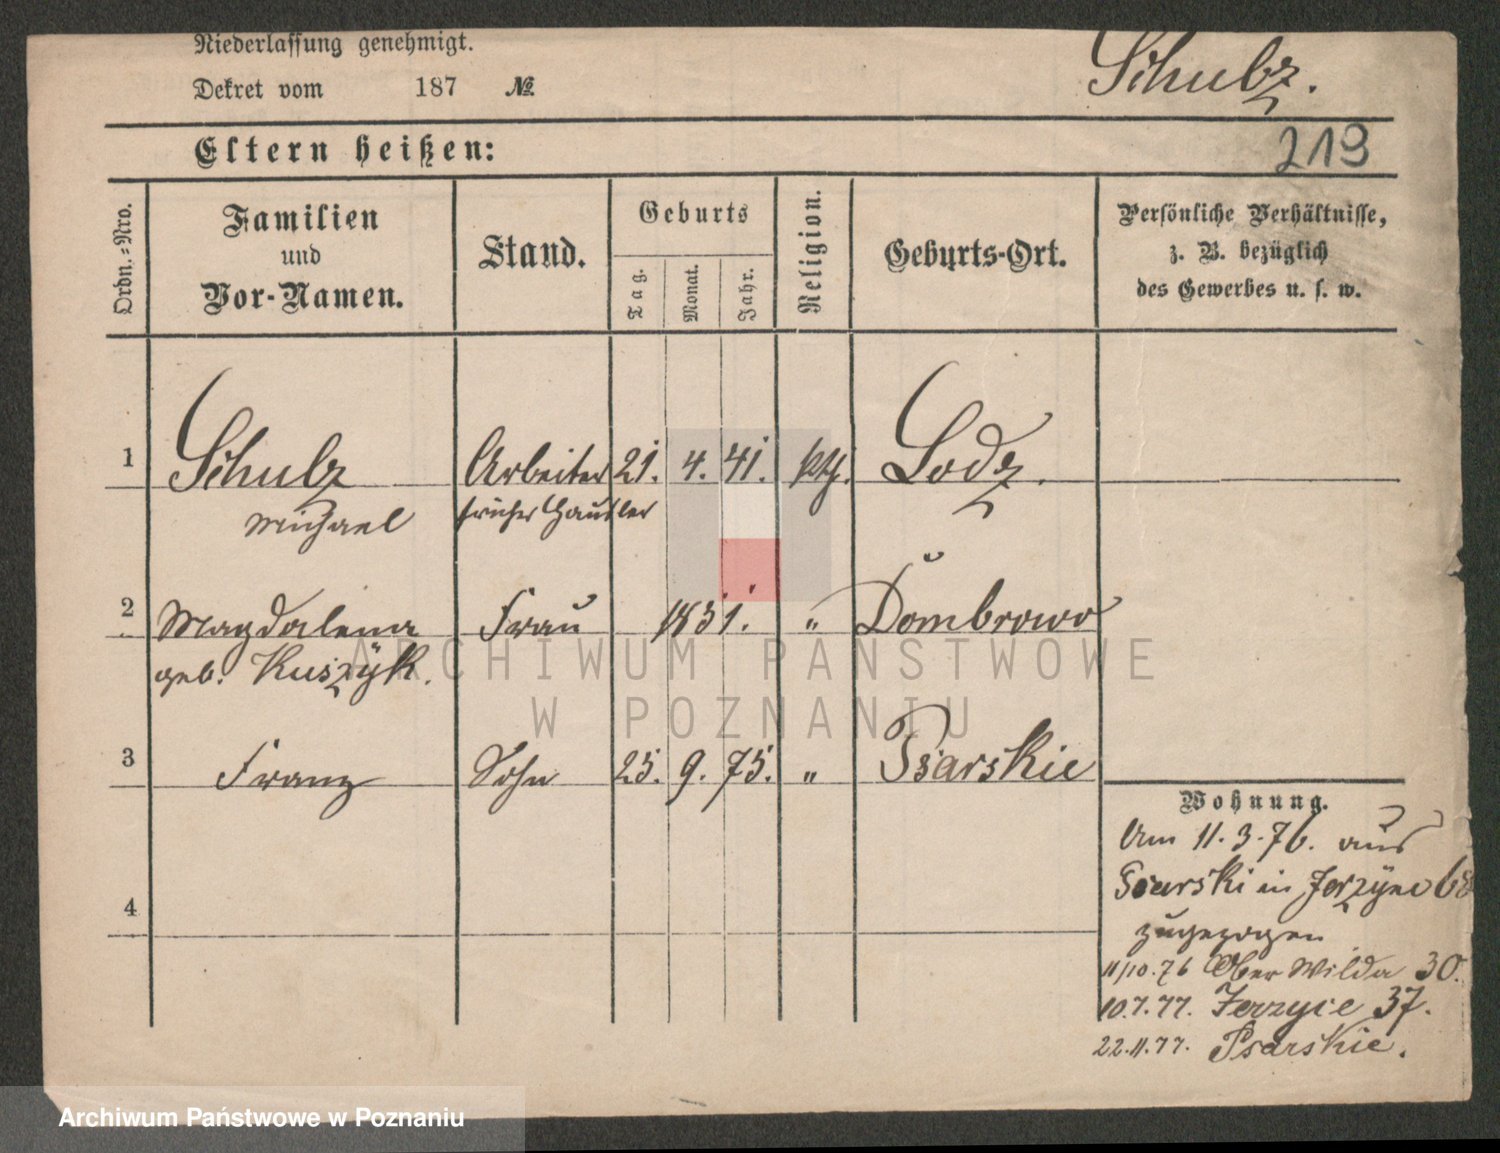 Niederlassung genehmigt.
Dekret vom 187 №
Schulz.
219
Eltern heißen:
Ordn.-Nro.
Familien und Vor-Namen.
Stand.
Geburts
Tag. Monat. Jahr.
Religion.
Geburts-Ort.
Persönliche Verhältnisse,
z. B. bezüglich
des Gewerbes u. s. w.
1 Schulz Arbeiter 21. 4. 41. kth. Lodz.
Michael früher Häusler
2 Magdalena Frau 1831. " Dombrowo
geb. Kuszyk.
3 Franz Sohn 25. 9. 75. " Psarskie
4
Wohnung.
Am 11.3.76. aus
Psarski in Jerzyce 68
zugezogen
11/10.76 Ober Wilda 30.
10.7.77. Jerzyce 37.
22.11.77. Psarskie.
ARCHIWUM PAŃSTWOWE
W POZNANIU
Archiwum Państwowe w Poznaniu